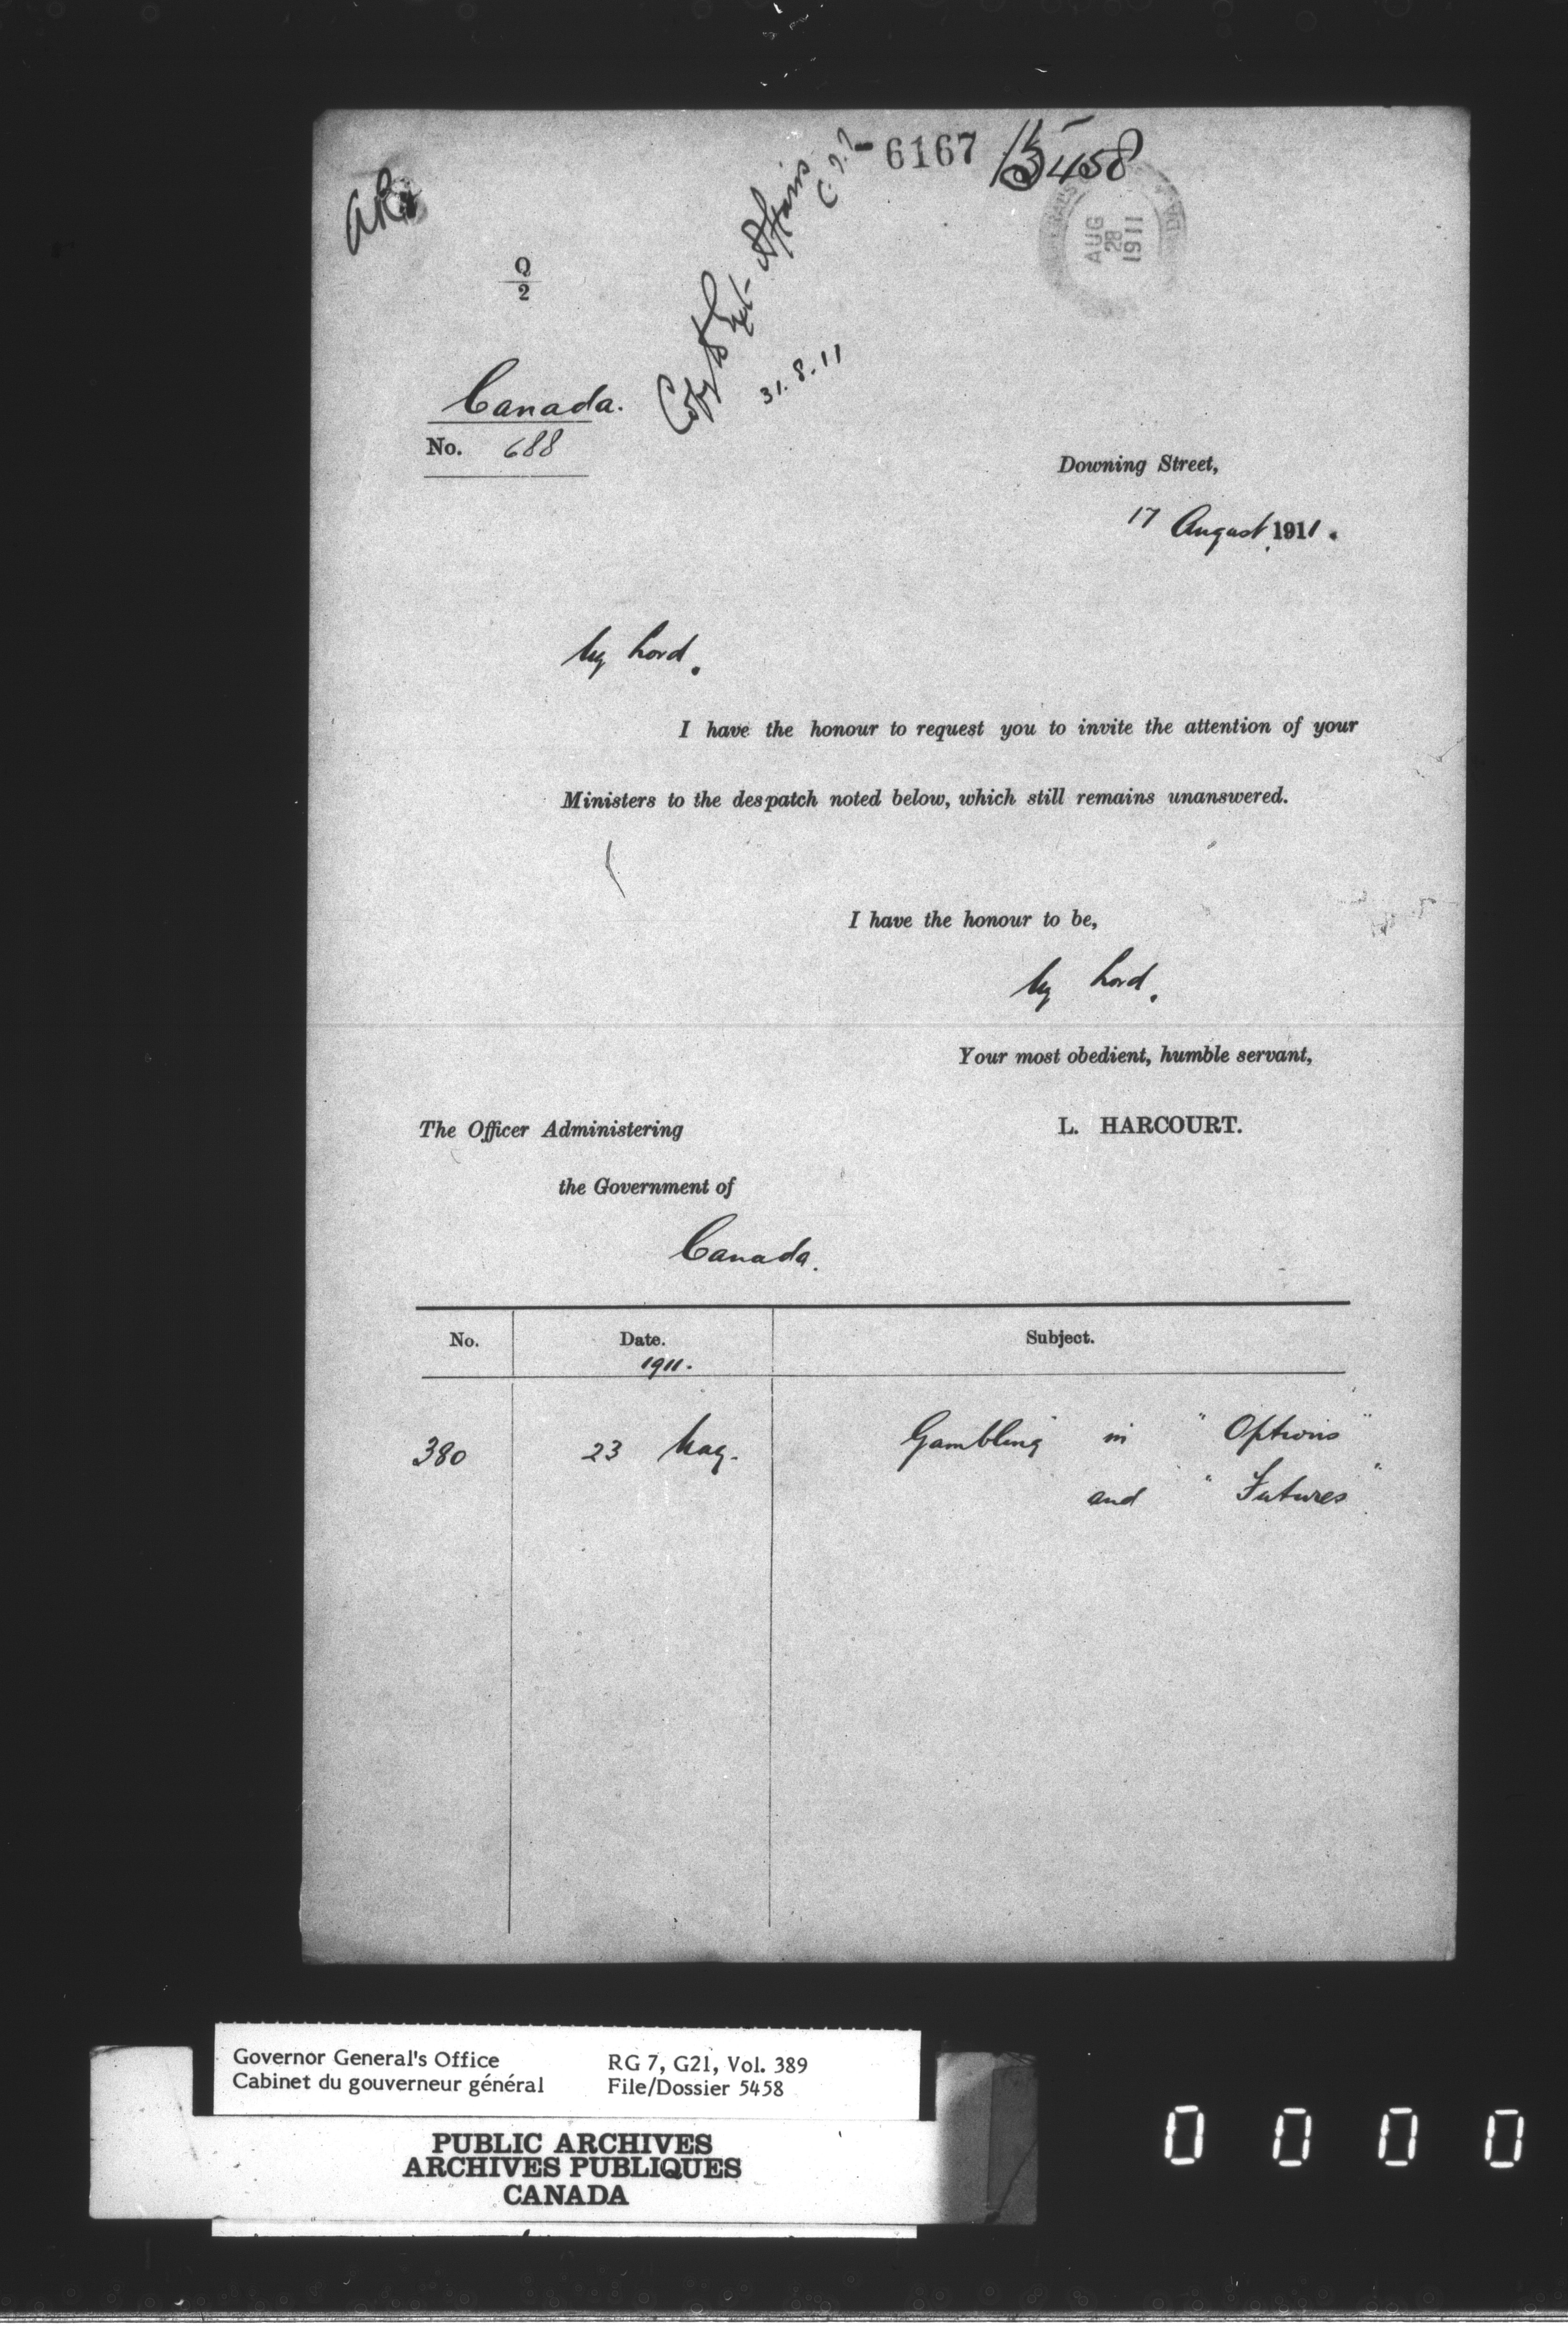 6167
5458
AUG
28
1911
Q
2
Copy to Ext. Affairs
31.8.11
Canada.
No. 688
Downing Street,
17 August, 1911.
My Lord,
I have the honour to request you to invite the attention of your
Ministers to the despatch noted below, which still remains unanswered.
I have the honour to be,
My Lord,
Your most obedient, humble servant,
L. HARCOURT.
The Officer Administering
the Government of
Canada.
No. Date. Subject.
1911.
380 23 May. Gambling in "Options"
and "Futures"
Governor General's Office RG 7, G21, Vol. 389
Cabinet du gouverneur général File/Dossier 5458
PUBLIC ARCHIVES
ARCHIVES PUBLIQUES
CANADA
0 0 0 0